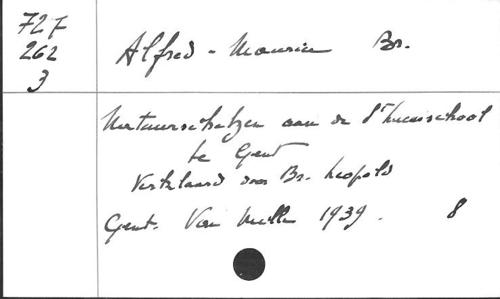 727
262
3
Alfred - Maurice Br.
Natuurschatzen aan de St Lucasschool
te Gent
Verklaard door Br. Leopold
Gent. Van 1939. 8